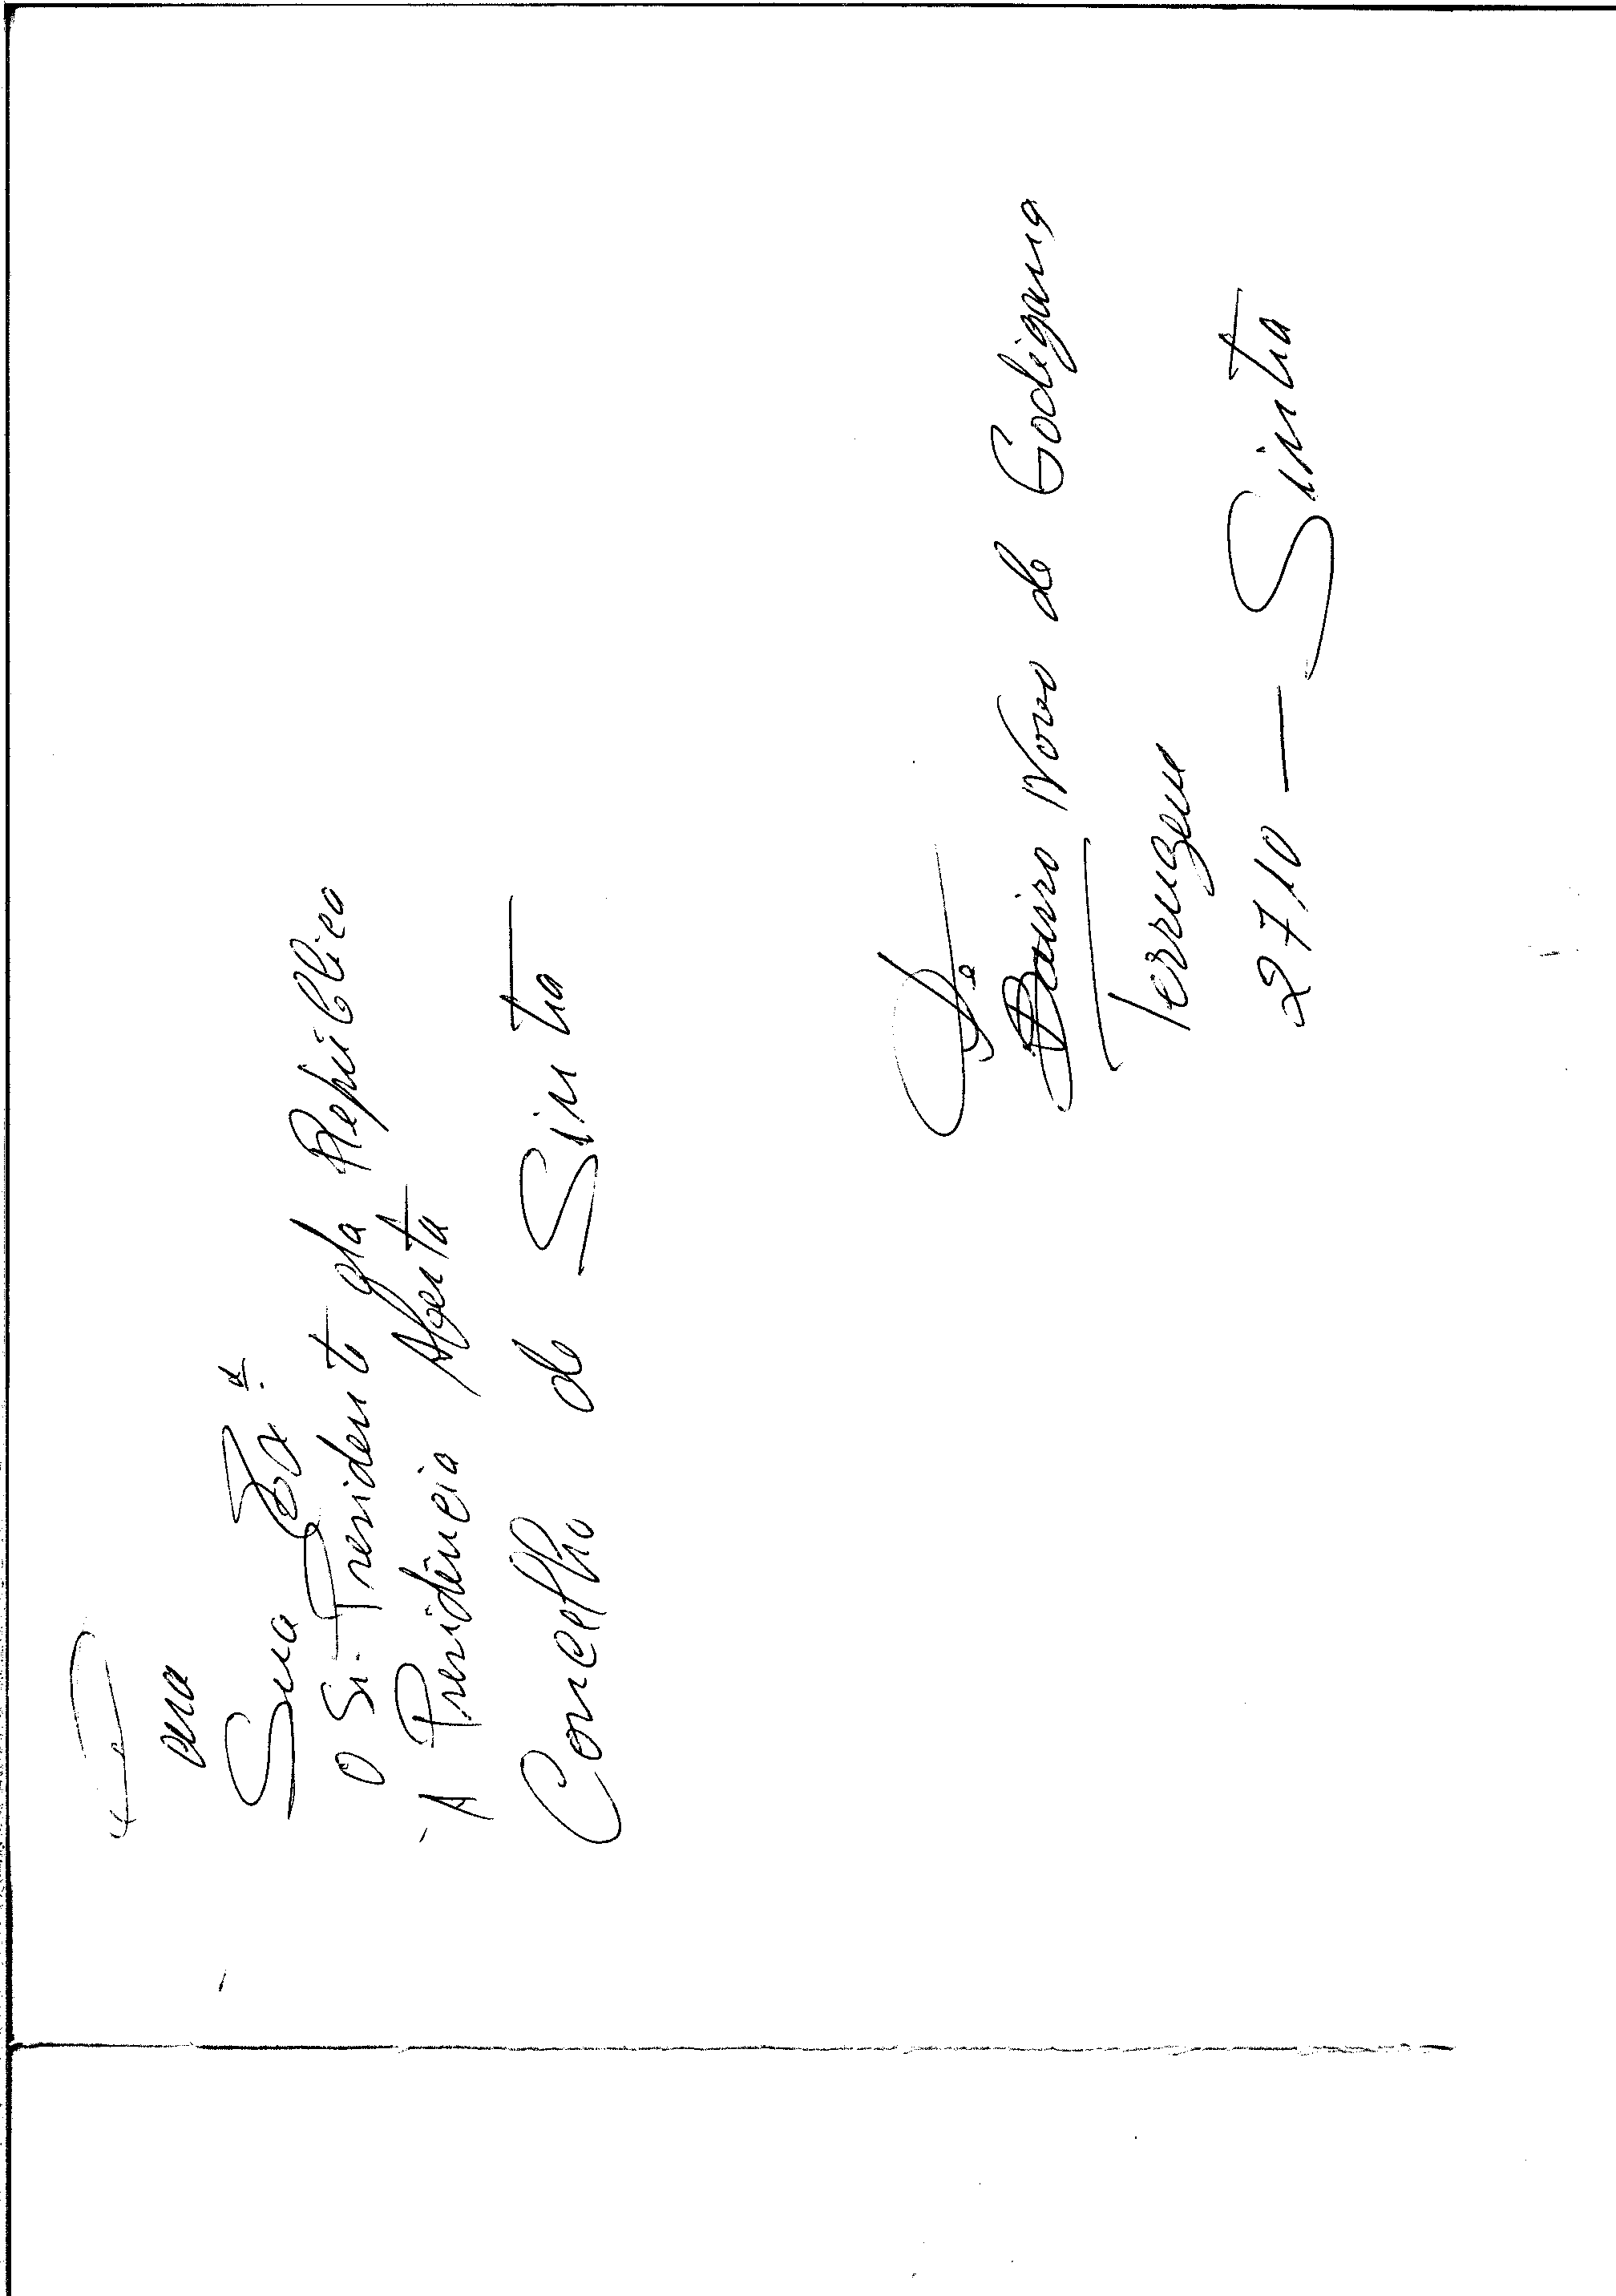 Para
Sua Exª
O Sr. Presidente da República
À Presidência Aberta
Concelho de Sintra
De
Bairro Novo de Godigana
Terrugem
2710 — Sintra